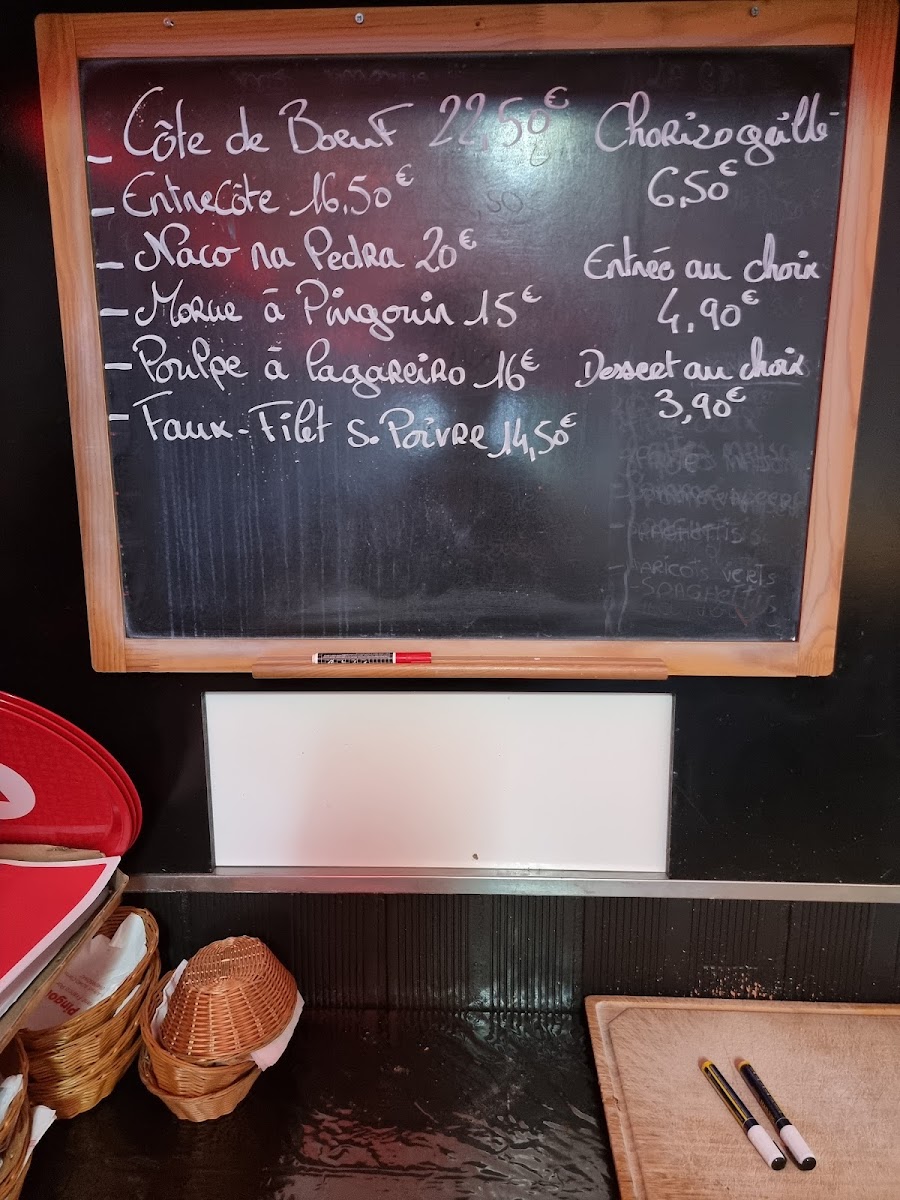 - Côte de Boeuf 22,50€
- Entrecôte 16,50€
- Naco na Pedra 20€
- Morue à Pingouin 15€
- Poulpe à Lagareiro 16€
- Faux-Filet S. Poivre 14,50€
Chorizo grillé
6,50€
Entrée au choix
4,90€
Dessert au choix
3,90€
- ARICOTS VERTS
SPAGHETTIS